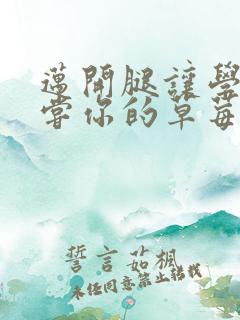 邁開腿讓學
嘗你的草莓
誓言茹楓
未經同意禁止轉載